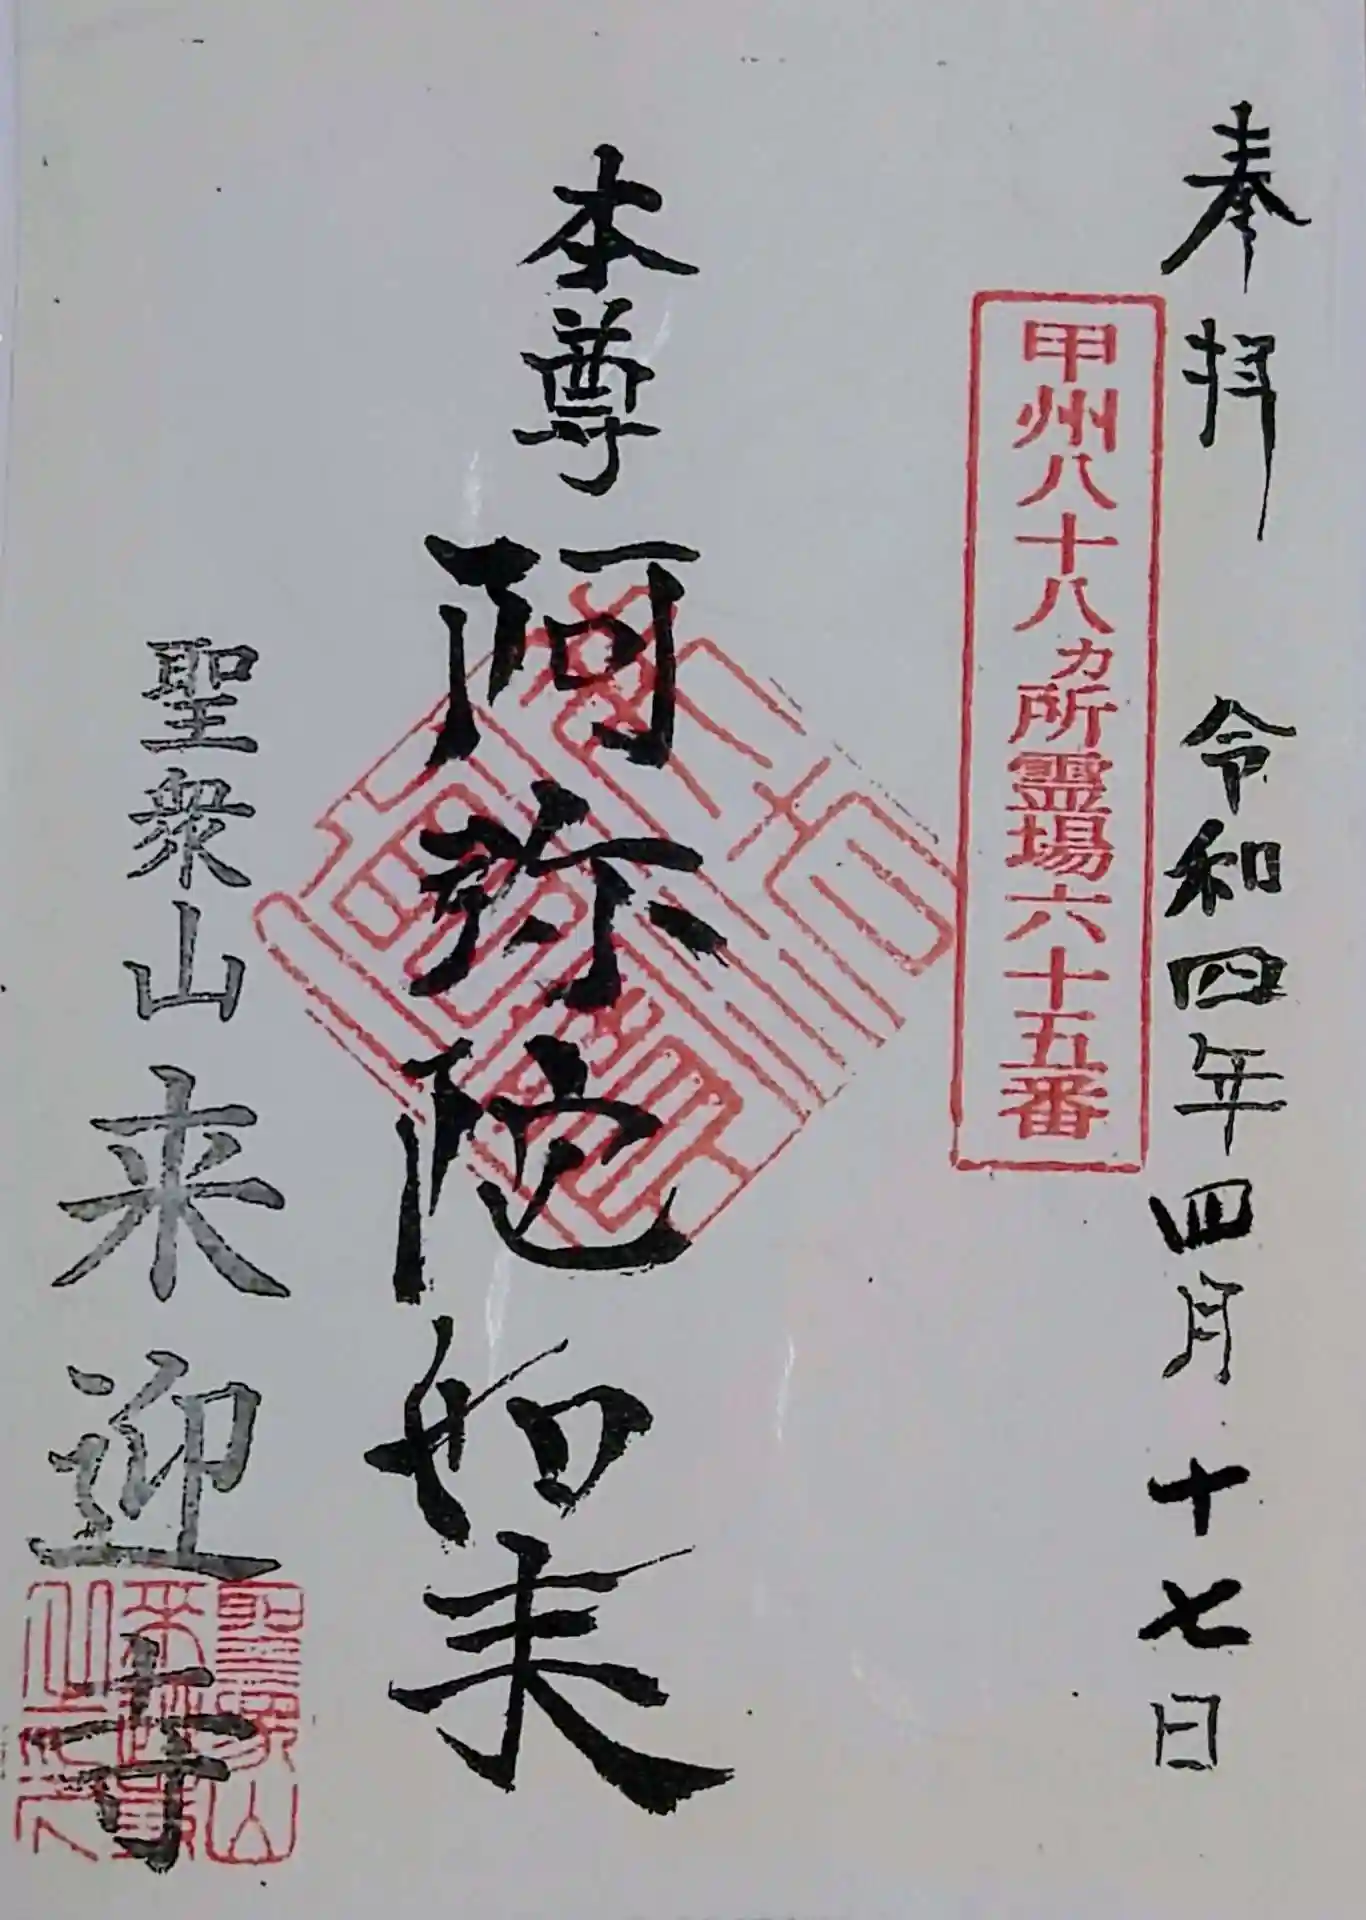 奉拝 令和四年四月十七日
甲州八十八ヵ所霊場六十五番
本尊 阿弥陀如来
聖衆山 来迎寺